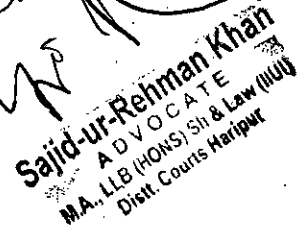 Sajid-ur-Rehman Khan
ADVOCATE
M.A., LLB (HONS) Sh & Law (IIUI)
Distt. Courts Haripur